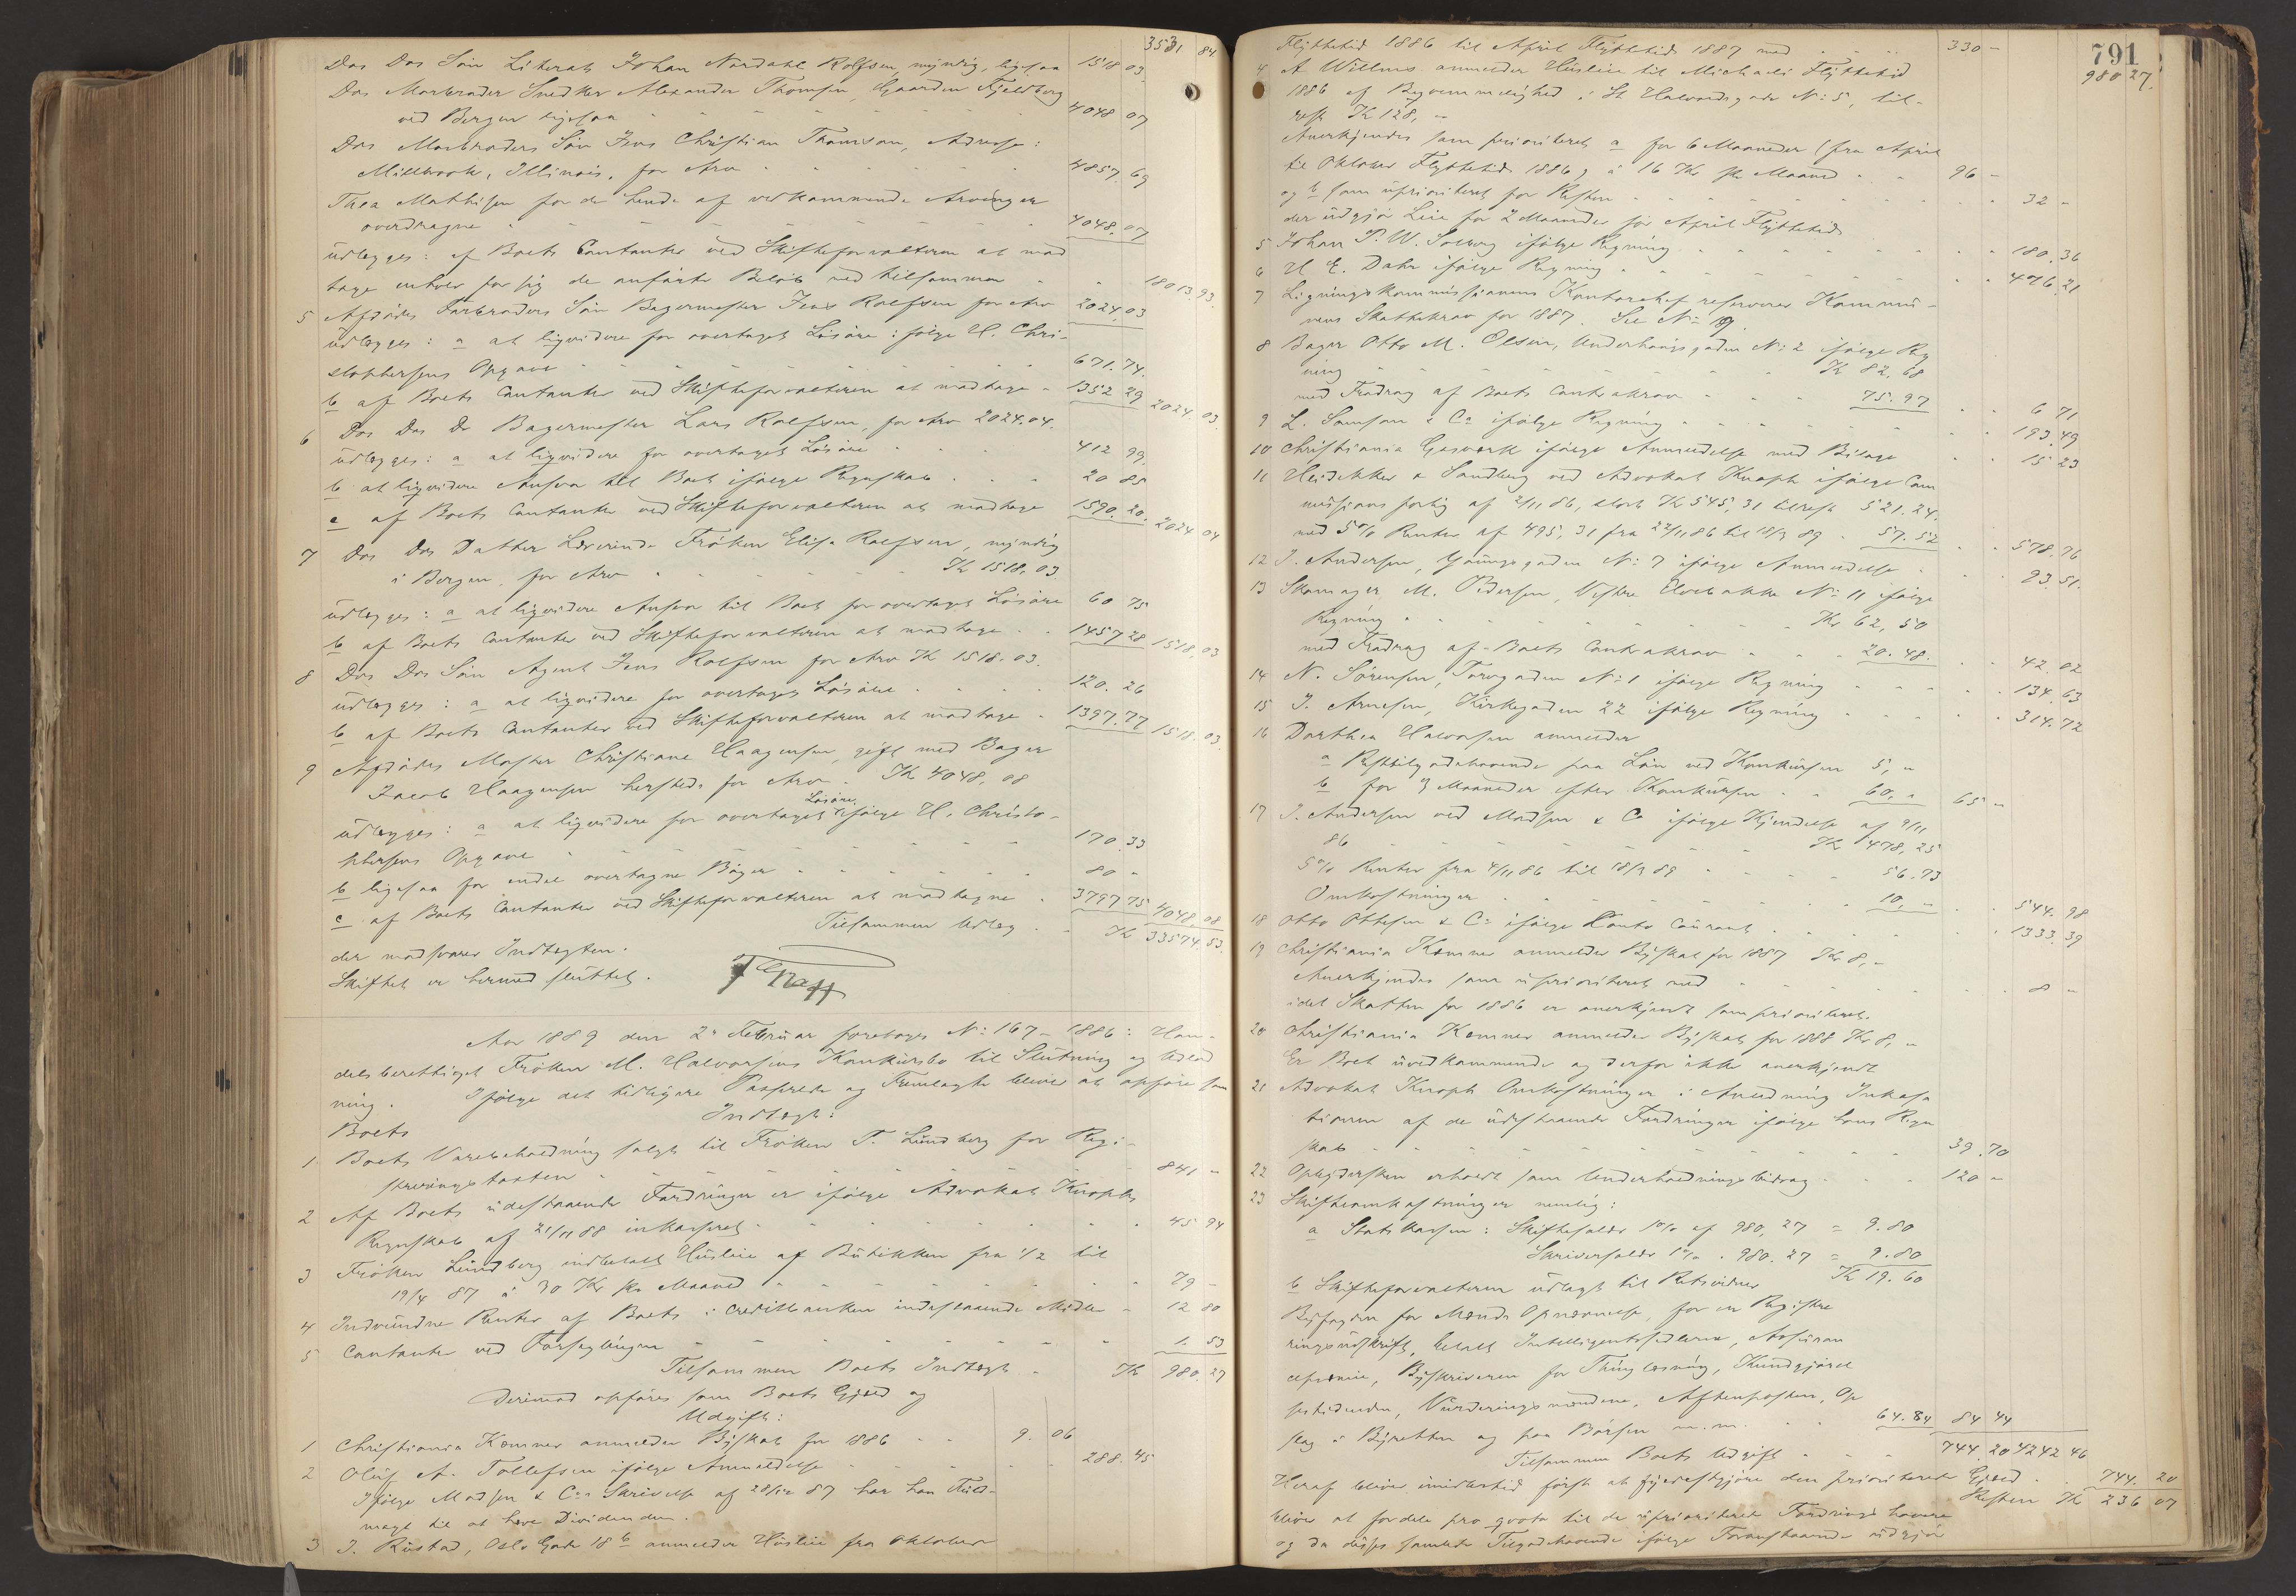 3531 84
Das Das Søn Literat Johan Nordahl Rolfsen myndig, ligesaa 1518 03
Das Morbroder Snedker Alexander Thomsen, Gaarden Fjeldberg
ved Bergen ligesaa 4048 07
Das Morbroders Søn Jens Christian Thomson, Adresse:
Millbrook, Illinois, for Arv 4857.69
Thea Mathisen for de hende af vedkommende Arvinger
overdragne 4048.07
udlægges: af Boets Contanter ved Skifteforvalteren at mod
tage enhver for sig de anførte Beløb med tilsammen 18013.93
5 Afdødes Farbroders Søn Bagermester Jens Rolfsen for Arv 2024,03
udlægges: a at liqvidere for overtaget Løsøre ifølge H. Chri-
stophersens Opgave 671.74.
b af Boets Contanter ved Skifteforvalteren at modtage 1352 29 2024.03
6 Das Das Do Bagermester Lars Rolfsen, for Arv 2024.04.
udlægges: a at liqvidere for overtaget Løsøre 412 99.
b at liqvidere Ansvar til Boet ifølge Regnskab 20 85
c af Boets Contanter ved Skifteforvalteren at modtage 1590.20. 2024 04
7 Das Das Datter Lærerinde Frøken Elisa Rolfsen, myndig
i Bergen, for Arv Kr 1518,03.
udlægges: a at liqvidere Ansvar til Boet for overtaget Løsøre 60 75
b af Boets Contanter ved Skifteforvalteren at modtage 1457 28 1518,03
8 Das Das Søn Agent Jens Rolfsen for Arv Kr 1518.03.
udlægges: a at liqvidere for overtaget Løsøre 120.26
b af Boets Contanter ved Skifteforvalteren at modtage 1397.77 1518.03.
9 Afdødes Moster Christiane Haagensen, gift med Bager
Jacob Haagensen hersteds for Arv Kr 4048,08
udlægges: a at liqvidere for overtaget Løsøre ifølge H. Christo-
phersens Opgave 170.33
b ligesaa for endel overtagne Bøger 80 -
c af Boets Contanter ved Skifteforvalteren at modtagne 3797 75 4048.08
Tilsammen Udlæg Kr 33574.53.
der modsvarer Indtægten.
Skiftet er hermed sluttet.
Aar 1889 den 2 Februar foretoges No: 167 - 1886: Han-
delsberettiget Frøken M. Halvorsens Konkursbo til Slutning og Udlod
ning. Ifølge det tidligere Passerede og Fremlagte bliver at opføre som
Boets Indtægt:
1 Boets Varebeholdning solgt til Frøken T. Lundberg for Regi-
streringstaxten 841 -
2 Af Boets udestaaende Fordringer er ifølge Advokat Knophs
Regnskab af 21/11 88 inkasseret 45 94
3 Frøken Lundberg indbetalt Husleie af Butikken fra 1/2 til
19/4 87 á 30 Kr pr Maaned 79 -
4 Indvundne Renter af Boets i Creditbanken indestaaende Midler 12 80
5 Contanter ved Forseglingen 1. 53
Tilsammen Boets Indtægt Kr 980.27
Derimod opføres som Boets Gjæld og
Udgift:
1 Christiania Kæmner anmelder Byskat for 1886 9. 06
2 Oluf A. Tollefsen ifølge Anmeldelse 288.45
Ifølge Madsen & Co's Skrivelse af 28/12 87 har han Fuld-
magt til at hæve Dividenden.
3 J. Rustad, Oslo Gade 18 b anmelder Husleie fra Oktober
791
Flyttetid 1886 til April Flyttetid 1887 med 330 -
980 27.
4 A Willms anmelder Husleie til Michaeli Flyttetid
1886 af Beqvemmelighed i St Halvardsgade No: 5, til-
rest Kr 128,-
Anerkjendes som prioriteret a for 6 Maaneder (fra April
til Oktober Flyttetid 1886) á 16 Kr pr Maaned 96 -
og b som uprioriteret for Resten 32 -
der udgjør Leie for 2 Maaneder før April Flyttetid
5 Johan P. W. Solberg ifølge Regning 180.36
6 H. E. Dahr ifølge Regning 476.21
7 Ligningskommissionens Kontorchef reserverer Kommu-
nens Skattekrav for 1887. See No 19.
8 Bager Otto M. Olsen, Underhaugsgaden No: 2 ifølge Reg
ning Kr 82.68
med Fradrag af Boets Contrakrav 75.97 6 71
9 L. Samson & Co ifølge Regning 193.49
10 Christiania Gasværk ifølge Anmeldelse med Bilage 15 23
11 Heidekker & Sandberg ved Advokat Knoph ifølge Com
missionsforlig af 2/11 86, stort Kr 545,31 tilrest 521.24.
med 5% Renter af 495,31 fra 22/11 86 til 18/3 89 57.52 578.76
12 J. Andersen, Youngsgaden No: 7 ifølge Anmeldelse 23.51.
13 Skomager M. Pedersen, Vestre Elvebakke No: 11 ifølge
Regning Kr 62,50
med Fradrag af Boets Contrakrav 20.48. 42.02
14 N. Sørensen, Torvgaden No: 1 ifølge Regning 134.63
15 J. Arnesen, Kirkegaden 22 ifølge Regning 314.72
16 Dorthea Halvorsen anmelder
a Resttilgodehavende paa Løn ved Konkursen 5,-
b for 3 Maaneder efter Konkursen 60,- 65 -
17 J. Andersen ved Madsen & Co ifølge Kjendelse af 9/11
86 Kr 478,25
5% Renter fra 4/11 86 til 18/3 89 56.73
Omkostninger 10,- 544.98
18 Otto Ottesen & Co ifølge Conto Courant 1333.39
19 Christiania Kæmner anmelder Byskat for 1887 Kr 8,-
Anerkjendes som uprioriteret med 8 -
idet Skatten for 1886 er anerkjendt som prioriteret.
20 Christiania Kæmner anmelder Byskat for 1888 Kr 8,-
Er Boet uvedkommende og derfor ikke anerkjendt
21 Advokat Knoph Omkostninger i Anledning Inkassa
tionen af de udestaaende Fordringer ifølge hans Regn
skab 39.70
22 Opbydersken erholdt som Underholdningsbidrag 120 -
23 Skifteomkostninger nemlig:
a Statskassen: Skiftefaldt 1% af 980,27 = 9.80
Skriverfaldt 1% " 980.27 = 9.80
Kr 19.60
b Skifteforvalteren udlagt til Retsvidner
Byfogden for Mænds Opnævnelse, for en Registre
ringsudskrift, betalt Intelligentssedlerne, Assuran
cepræmie, Byskriveren for Thinglæsning, Kundgjørel
sestidenden, Vurderingsmændene, Aftenposten, Op
slag i Byretten og paa Børsen m. m. 64.84 84 44
Tilsammen Boets Udgift 744.20 4242 46
Heraf bliver imidlertid først at fyldestgjøre den prioriterede Gjæld 744. 20
Resten Kr 236 07
bliver at fordele pro qvota til de uprioriterede Fordringshavere
og da disses samlede Tilgodehavende ifølge Foranstaaende udgjør